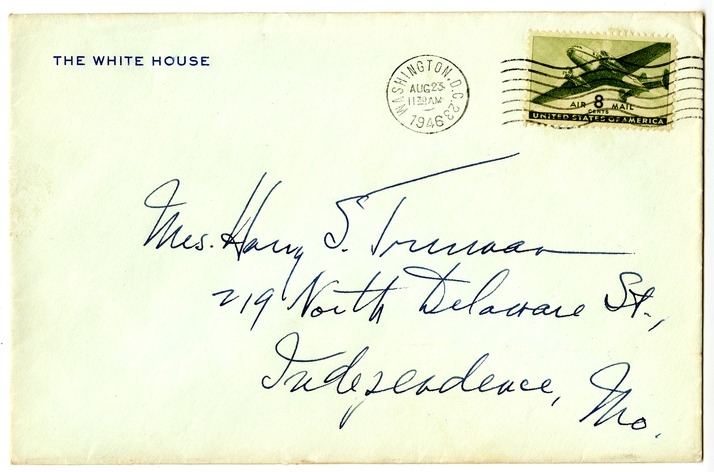 THE WHITE HOUSE
WASHINGTON, D.C. 23
AUG 23
11 30 AM
1946
AIR 8 MAIL
CENTS
UNITED STATES OF AMERICA
Mrs. Harry S. Truman
219 North Delaware St.,
Independence, Mo.